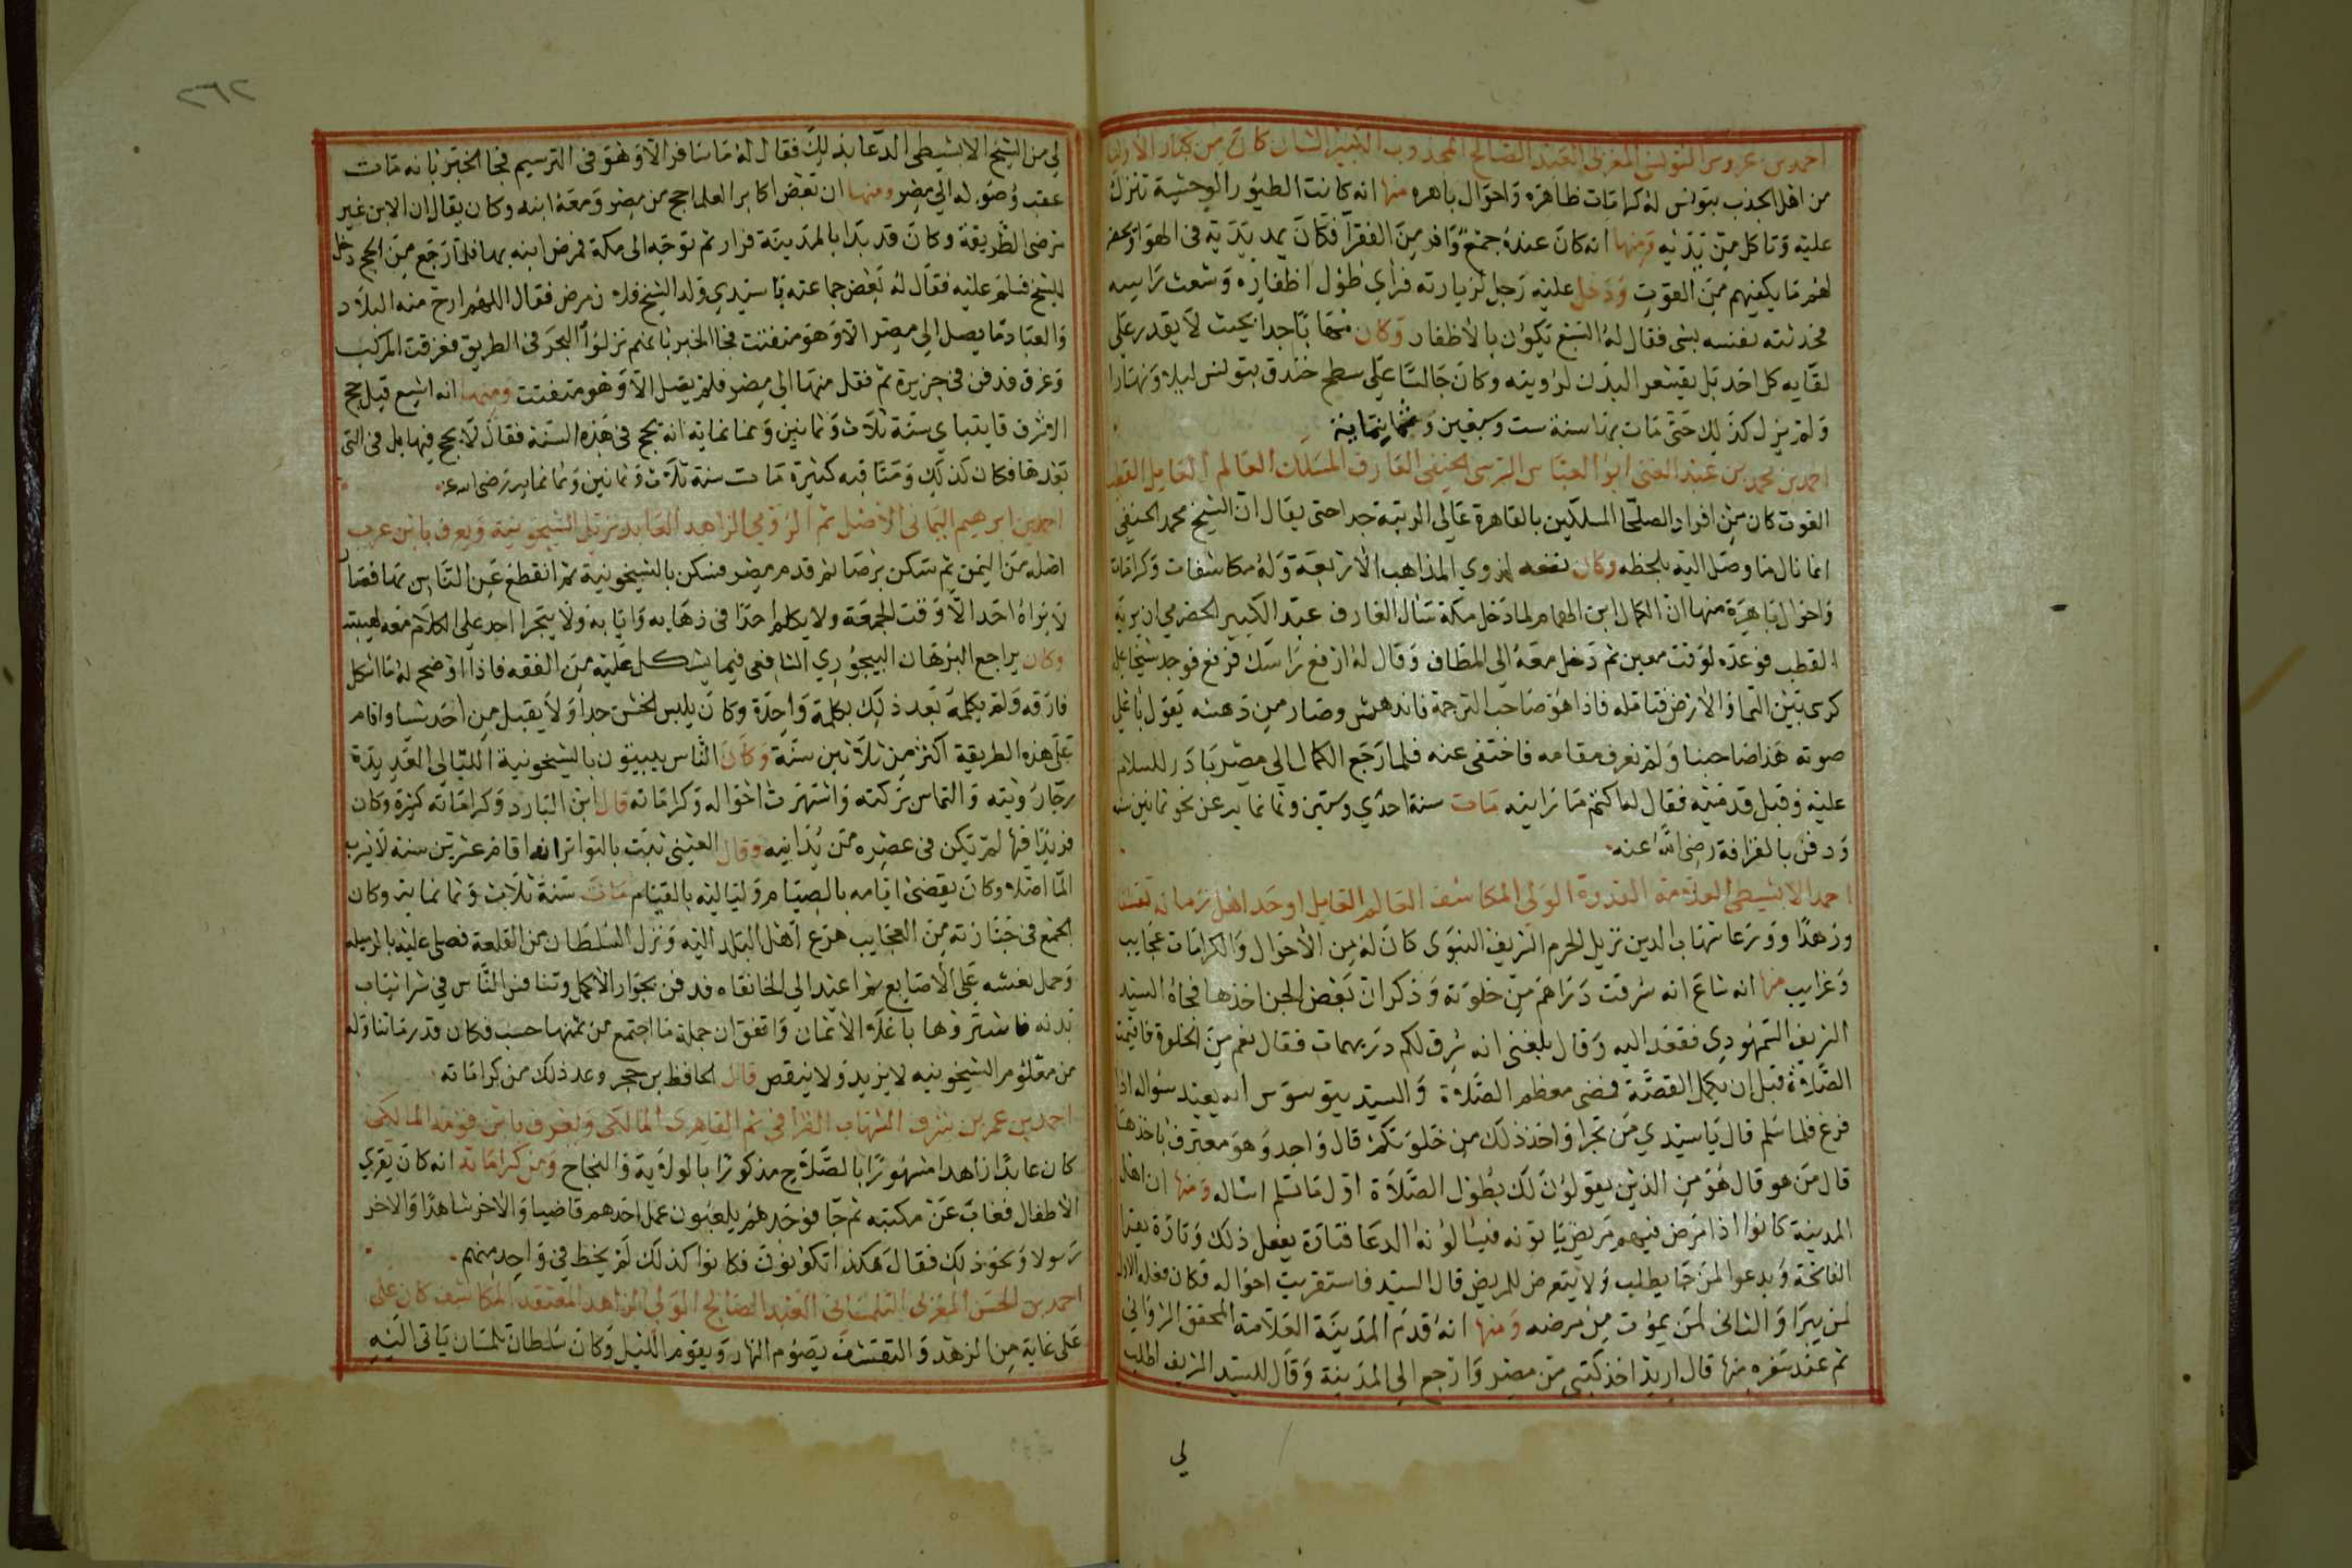 احمد بن عروس التونسى المغربى العبد الصالح المجذوب الكبير الشان كان من كبار الاوليا
من اهل الجذب بتونس له كرامات ظاهره واحوال باهره منها انه كانت الطيور الوحشية تنزل
عليه وتاكل من يديه ومنها انه كان عنده جمع وافر من الفقرا فكان يمد يديه فى الهوا ويحضر
لهم ما يكفيهم من القوت ودخل عليه رجل لزيارته فراي طول اظفاره وشعث راسه
فحدثته نفسه بشى فقال له السبع يكون بالاظفار وكان مهابا جدا بحيث لا يقدر على
لقايه كل احد بل يقشعر البدن لرؤيته وكان جالسا على سطح خندق بتونس ليلا ونهارا
ولم يزل كذلك حتى مات بها سنة ست وسبعين وثمانمائة
احمد بن محمد بن عبد الغنى ابو العباس السرسى الحنفى العارف المسلك العالم العامل القطب
الغوث كان من افراد الصلحا المسلكين بالقاهرة عالى المرتبة جدا حتى يقال ان الشيخ محمد الحنفى
انما نال ما وصل اليه بلحظه وكان نفعه لذوي المذاهب الاربعة وله مكاشفات وكرامات
واحوال باهرة منها ان الكمال ابن الهمام لما دخل مكة سال العارف عبد الكبير الحضرمي ان يريه
القطب فوعده لوقت معين ثم دخل معه الى المطاف وقال له ارفع راسك فرفع فوجد شيخا على
كرسى بين السما والارض فتامله فاذا هو صاحب الترجمة فاندهش وصار من دهشه يقول باعلى
صوته هذا صاحبنا ولم نعرف مقامه فاختفى عنه فلما رجع الكمال الى مصر بادر للسلام
عليه وقبل قدميه فقال له اكتم ما رايته مات سنة احدي وستين وثمانمايه عن نحو ثمانين سنه
ودفن بالقرافة رضى الله عنه
احمد الابشيطى العلامة القدوة الولى المكاشف العالم العامل اوحد اهل زمانه تقشفا
وزهدا وورعا شهاب الدين نزيل الحرم الشريف النبوى كان له من الاحوال والكرامات عجايب
وغرايب منها انه شاع انه سرقت دراهم من خلوته وذكر ان بعض الجن اخذها فجاه السيد
الشريف السمهودي فقعد اليه وقال بلغنى انه سرق لكم دريهمات فقال نعم من الخلوة فاقيمت
الصلاة قبل ان يكمل القصة فمضى معظم الصلاة والسيد يتوسوس انه يعيد سواله اذا
فرغ فلما سلم قال يا سيدي من تجرا واخذ ذلك من خلوتكم قال واحد وهو معترف باخذها
قال من هو قال هو من الذين يقولون لك بطول الصلاة اول ما تسلم اساله ومنها ان اهل
المدينة كانوا اذا مرض فيهم مريض ياتونه فيسالونه الدعا فتارة يفعل ذلك وتارة يقرا
الفاتحة ويدعوا لمن حما يطلب ولا يتعرض للمريض قال السيد فاستقريت احواله فكان فعله الاول
لمن يبرا والثانى لمن يموت من مرضه ومنها انه قدم المدينة العلامة المحقق الزواني
ثم عند سفره منها قال اريد اخذ كتبى من مصر وارجع الى المدينة وقال للسيد الشريف اطلب
لي
٢٦٢
لي من الشيخ الابشيطى الدعا بذلك فقال له ما سافر الا وهو فى الترسيم فجا الخبر بانه مات
عقب وصوله الى مصر ومنها ان بعض اكابر العلما حج من مصر ومعه ابنه وكان يقال ان الابن غير
مرضى الطريقة وكان قد بدا بالمدينة فزار ثم توجه الى مكة فمرض ابنه بها فلما رجع من الحج دخل
للشيخ فسلم عليه فقال له بعض جماعته يا سيدي ولد الشيخ فلان مرض فقال اللهم ارح منه البلاد
والعباد ما يصل الى مصر الا وهو متفتت فجا الخبر بانهم نزلوا البحر فى الطريق فغرقت المركب
وغرق فدفن فى جزيرة ثم نقل منها الى مصر فلم يصل الا وهو متفتت ومنها انه اشيع قبل حج
الاشرف قايتباي سنة ثلاث وثمانين وثمانمايه انه يحج فى هذه السنة فقال لا يحج فيها بل فى التى
بعدها فكان كذلك ومناقبه كثيرة مات سنة ثلاث وثمانين وثمانمايه رضى الله عنه
احمد بن ابرهيم اليمانى الاصل ثم الرومي الزاهد العابد نزيل الشيخونية ويعرف بابن عرب
اصله من اليمن ثم سكن برصا ثم قدم مصر فسكن بالشيخونية ثم انقطع عن الناس بها فصار
لا يراه احد الا وقت الجمعة ولا يكلم احدا فى ذهابه وايابه ولا يتجرا احد على الكلام معه لهيبته
وكان يراجع البرهان البيجوري الشافعى فيما يشكل عليه من الفقه فاذا اوضح له ما اشكل
فارقه ولم يكلمه بعد ذلك بكلمة واحدة وكان يلبس الخشن جدا ولا يقبل من احد شيا واقام
على هذه الطريقة اكثر من ثلاثين سنة وكان الناس يبيتون بالشيخونية الليالى العديدة
رجا رؤيته والتماس بركته واشتهرت احواله وكراماته قال ابن البارد وكراماته كثيرة وكان
فريدا فيها لم يكن فى عصره من يدانيه وقال العينى ثبت بالتواتر انه اقام عشرين سنة لا يشرب
الما اصلا وكان يقضى ايامه بالصيام ولياليه بالقيام مات سنة ثلاث وثمانمايه وكان
الجمع فى جنازته من العجايب هرع اهل البلد اليه ونزل السلطان من القلعة فصلى عليه بالرميله
وحمل نعشه على الاصابع ثم اعيد الى الخانقاه فدفن بجوار الاكمل وتنافس الناس في شرا ثياب
بدنه فاشتروها باغلا الاثمان واتفق ان جملة ما اجتمع من ثمنها حسب فكان قدر ما تناوله
من معلوم الشيخونيه لا يزيد ولا ينقص قال الحافظ بن حجر وعد ذلك من كراماته
احمد بن عمر بن شرف الشهاب القرافى ثم القاهرى المالكى ويعرف بابن قومه المالكى
كان عابدا زاهدا مشهورا بالصلاح مذكورا بالولاية والنجاح ومن كراماته انه كان يقري
الاطفال فغاب عن مكتبه ثم جا فوجدهم يلعبون عمل احدهم قاضيا والاخر شاهدا والاخر
رسولا ونحو ذلك فقال هكذا تكونون فكانوا كذلك لم يخط في واحد منهم
احمد بن الحسن المغربى التلمسانى العبد الصالح الولى الزاهد المعتقد المكاشف كان على
على غاية من الزهد والتقشف يصوم النهار ويقوم الليل وكان سلطان تلمسان ياتى اليه